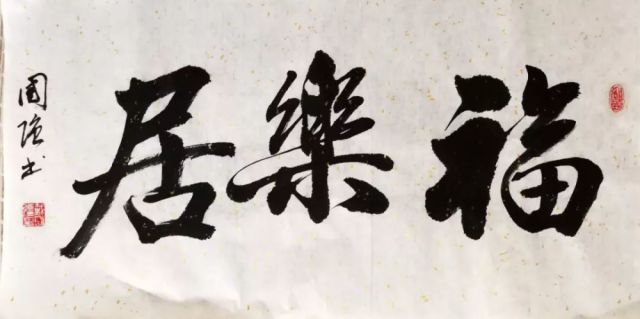 福樂居
国强书